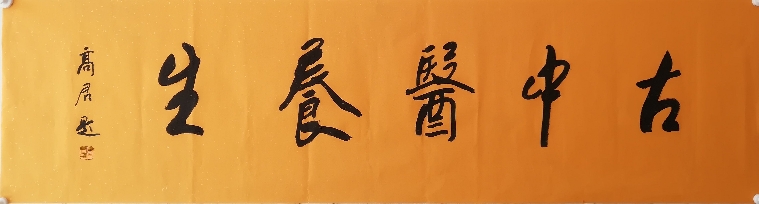 古中醫養生
高君題